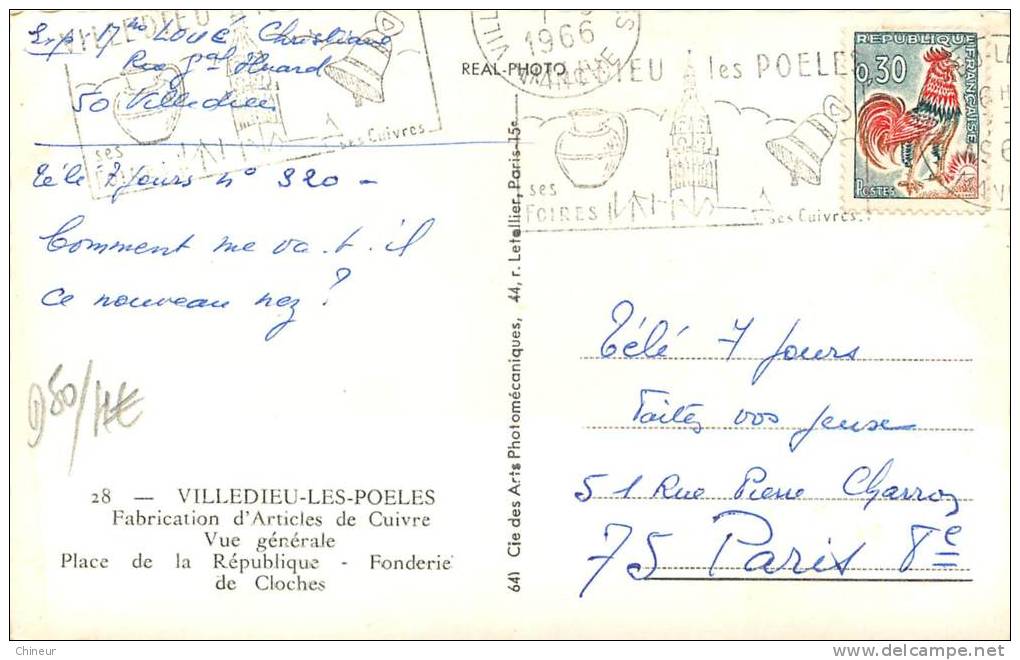 Exp. Mme LOUÉ Christiane
Rue Gal Huard
50 Villedieu
Télé 7 Jours n° 320 -
Comment me va.t.il
ce nouveau nez ?
D50/1€
28 — VILLEDIEU-LES-POELES
Fabrication d'Articles de Cuivre
Vue générale
Place de la République - Fonderie
de Cloches
REAL-PHOTO
641 Cie des Arts Photomécaniques, 44, r. Letellier, Paris-15e
1966
MANCHE
VILLEDIEU les POELES
ses
FOIRES
ses Cuivres
REPUBLIQUE
FRANÇAISE
0,30
POSTES
VILLEDIEU
ses
ses Cuivres
Télé 7 Jours
Faites vos jeux
51 Rue Pierre Charron
75 Paris 8e
Chineur
delcampe.net